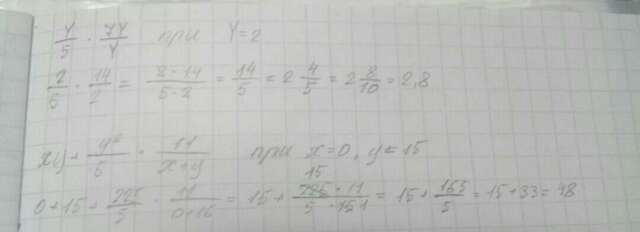 y/5 · 7y/y при y=2
2/5 · 14/2 = 2·14/5·2 = 14/5 = 2 4/5 = 2 8/10 = 2,8
xy + y²/5 · 11/x+y при x=0, y=15
0+15+ 225/5 · 11/0+15 = 15+ 225·11/5·15 1 = 15+ 165/5 = 15+33=48